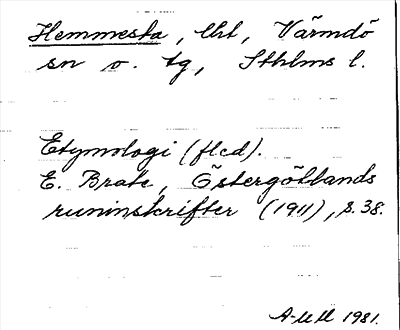 Hemmesta, Uht, Värmdö
sn o. tg, Sthlms l.
Etymologi (fled).
E. Brate, Östergötlands
runinskrifter (1911), s. 38.
A-MM 1981.